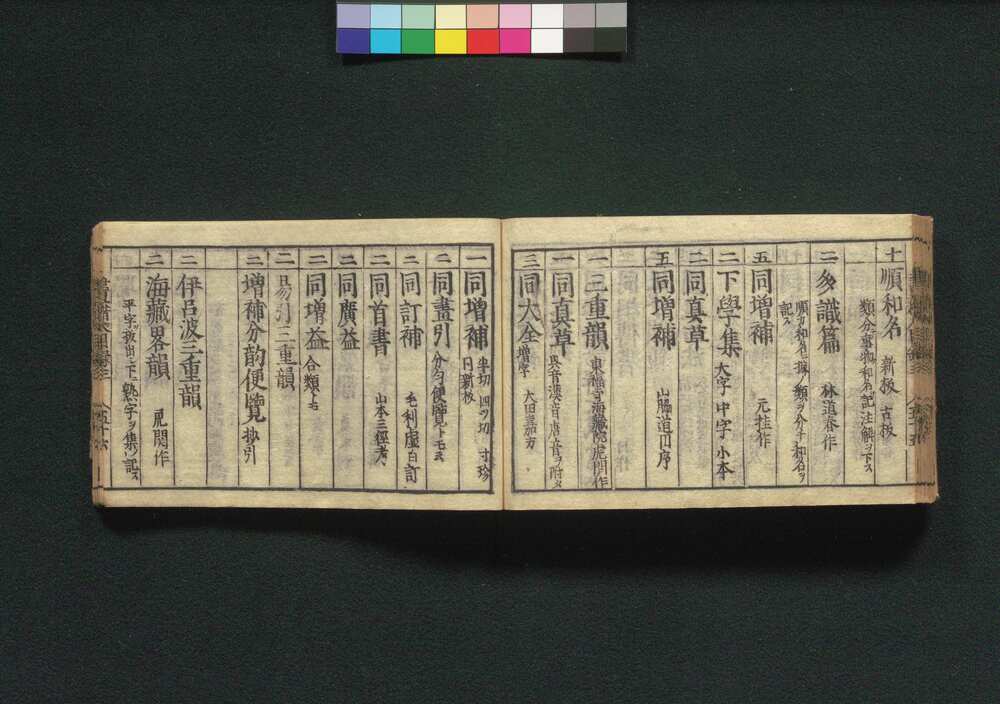 十 順和名 新板 古板
類分ケ事物ニ和名ヲ記シ注解ヲ下ス
二 多識篇 林道春作
順ガ和名ニ擬ヘ類ヲ分チ和名ヲ
記ス
五 同増補 元挂作
二 下學集 大字 中字 小本
二 同真草
五 同増補 山脇道円序
一 三重韻 東福寺海藏院虎関作
一 同真草 典音漢音唐音ヲ附ス
三 同大全 増字 大田嘉方
一 同増補 半切 四ツ切 寸珍
同新板
二 同畫引 分句便覽トモ云
二 同訂補 毛利虚白訂
二 同首書 山本三徑考
二 同廣益
二 同増益 合類トモ
二 易引三重韻
二 増補分韵便覽 抄引
二 伊呂波三重韻
二 海藏畧韻 虎関作
平字ヲ抜出シ下ニ熟字ヲ集メ記ス